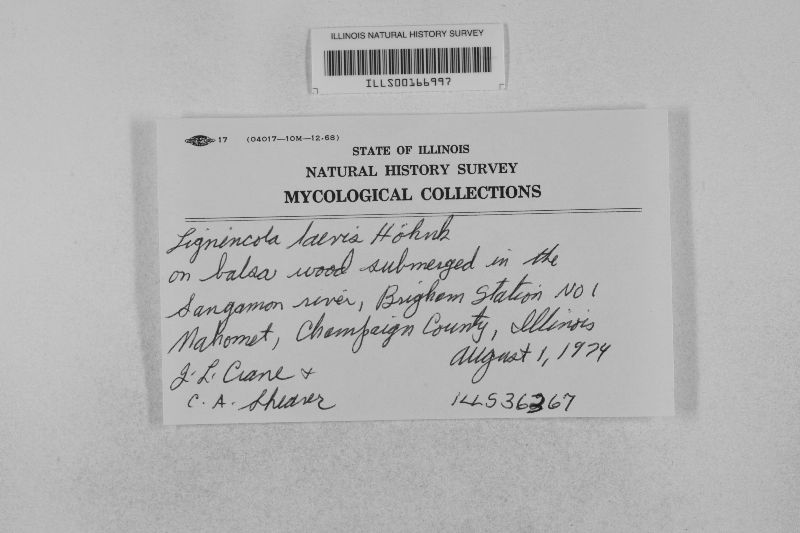 ILLINOIS NATURAL HISTORY SURVEY
ILLS00166997
17 (04017—10M—12-68)
STATE OF ILLINOIS
NATURAL HISTORY SURVEY
MYCOLOGICAL COLLECTIONS
Lignincola laevis Höhnk
on balsa wood submerged in the
Sangamon river, Brigham Station NO 1
Mahomet, Champaign County, Illinois
J. L. Crane + August 1, 1974
C. A. Shearer ILLS 36267